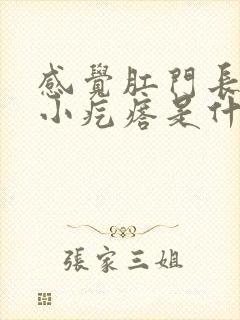 感覺肛門長
小疙瘩是什
張家三姐